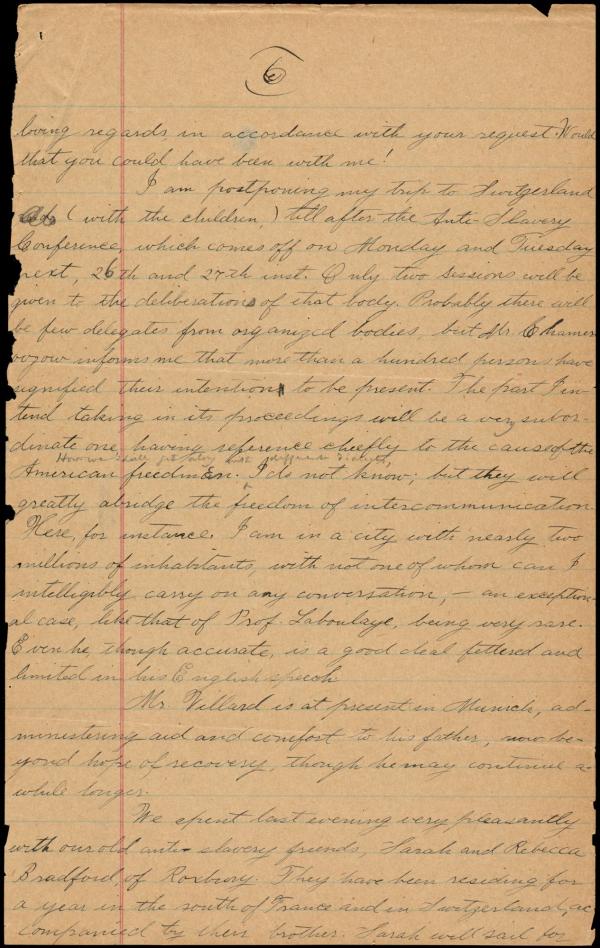 6
loving regards in accordance with your request. Would
that you could have been with me!
I am postponing my trip to Switzerland
(with the children,) till after the Anti-Slavery
Conference, which comes off on Monday and Tuesday
next, 26th and 27th inst. Only two sessions will be
given to the deliberations of that body. Probably there will
be few delegates from organized bodies, but Mr. Chamer-
ovzow informs me that more than a hundred persons have
signified their intention to be present. The part I in-
tend taking in its proceedings will be a very subor-
dinate one, having reference cheefly to the cause of the
How we shall get along with different
American freedmen. I do not know; but they will
greatly abridge the freedom of intercommunication.
Here, for instance, I am in a city with nearly two
millions of inhabitants, with not one of whom can I
intelligibly carry on any conversation, — an exception-
al case, like that of Prof. Laboulaye, being very rare.
Even he, though accurate, is a good deal fettered and
limited in his English speech.
Mr. Villard is at present in Munich, ad-
ministering aid and comfort to his father, now be-
yond hope of recovery, though he may continue a-
while longer.
We spent last evening very pleasantly
with our old anti-slavery friends, Sarah and Rebecca
Bradford, of Roxbury. They have been residing for
a year in the south of France and in Switzerland, ac-
companied by their brother. Sarah will sail for